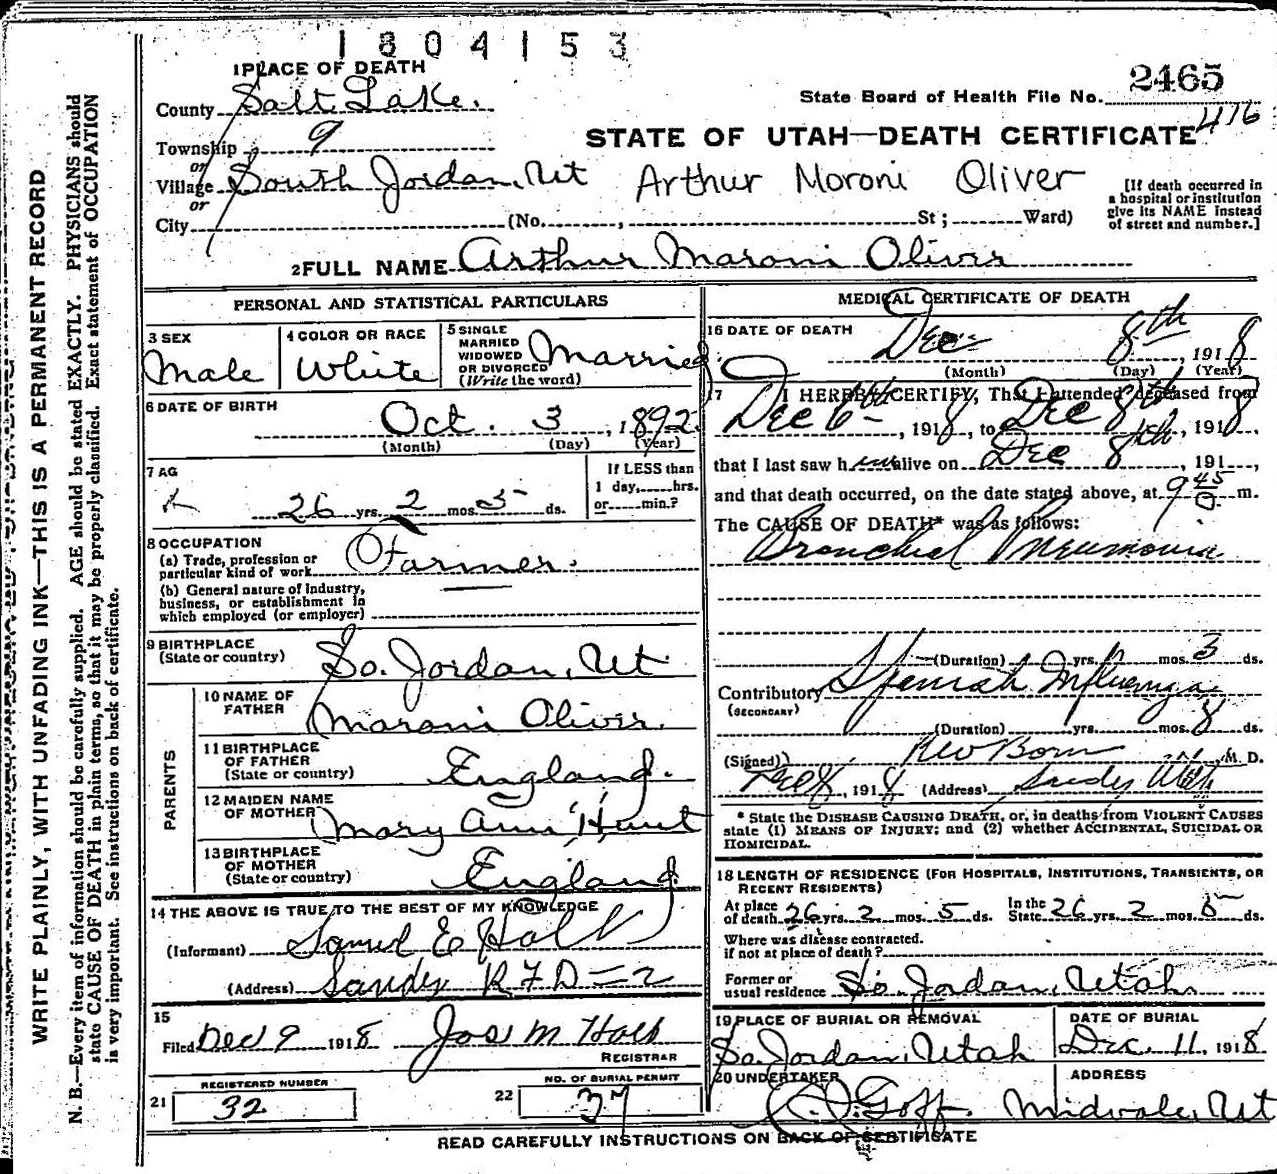 1804153
1 PLACE OF DEATH
2465
County Salt Lake.
State Board of Health File No.
416
Township 9
STATE OF UTAH—DEATH CERTIFICATE
or
Village South Jordan, Ut
Arthur Moroni Oliver
[If death occurred in
a hospital or institution
give its NAME instead
of street and number.]
or
City (No. , St ; Ward)
2 FULL NAME Arthur Maroni Oliver
PERSONAL AND STATISTICAL PARTICULARS
3 SEX
Male
4 COLOR OR RACE
White
5 SINGLE
MARRIED
WIDOWED
OR DIVORCED
(Write the word)
Married
6 DATE OF BIRTH
Oct. 3, 1892
(Month) (Day) (Year)
7 AG
26 yrs. 2 mos. 5 ds.
If LESS than
1 day, hrs.
or min.?
8 OCCUPATION
(a) Trade, profession or
particular kind of work Farmer.
(b) General nature of Industry,
business, or establishment in
which employed (or employer)
9 BIRTHPLACE
(State or country) So. Jordan, Ut.
PARENTS
10 NAME OF
FATHER
Maroni Oliver.
11 BIRTHPLACE
OF FATHER
(State or country) England.
12 MAIDEN NAME
OF MOTHER Mary Ann Hunt
13 BIRTHPLACE
OF MOTHER
(State or country) England
14 THE ABOVE IS TRUE TO THE BEST OF MY KNOWLEDGE
(Informant) Samuel E Holt
(Address) Sandy R F D - 2
15
Filed Dec 9 1918 Jos M Holt
REGISTRAR
REGISTERED NUMBER
21 32
NO. OF BURIAL PERMIT
22 37
MEDICAL CERTIFICATE OF DEATH
16 DATE OF DEATH
Dec 8th, 1918
(Month) (Day) (Year)
17 I HEREBY CERTIFY, That I attended deceased from
Dec 6th, 1918, to Dec 8th, 1918,
that I last saw him alive on Dec 8th, 191 ,
and that death occurred, on the date stated above, at 9 45 m.
The CAUSE OF DEATH* was as follows:
Bronchial Pneumonia
(Duration) yrs. mos. 3 ds.
Contributory Spanish Influenza
(SECONDARY)
(Duration) yrs. mos. 8 ds.
(Signed) M. D.
Dec 8, 1918 (Address) Sandy Utah
* State the DISEASE CAUSING DEATH, or, in deaths from VIOLENT CAUSES
state (1) MEANS OF INJURY; and (2) whether ACCIDENTAL, SUICIDAL OR
HOMICIDAL.
18 LENGTH OF RESIDENCE (FOR HOSPITALS, INSTITUTIONS, TRANSIENTS, OR
RECENT RESIDENTS)
At place
of death 26 yrs. 2 mos. 5 ds.
In the
State 26 yrs. 2 mos. 5 ds.
Where was disease contracted.
if not at place of death?
Former or
usual residence So. Jordan, Utah.
19 PLACE OF BURIAL OR REMOVAL
So. Jordan, Utah
DATE OF BURIAL
Dec. 11, 1918
20 UNDERTAKER
Goff.
ADDRESS
Midvale, Ut
READ CAREFULLY INSTRUCTIONS ON BACK OF CERTIFICATE
WRITE PLAINLY, WITH UNFADING INK—THIS IS A PERMANENT RECORD
N. B.—Every item of information should be carefully supplied. AGE should be stated EXACTLY. PHYSICIANS should
state CAUSE OF DEATH in plain terms, so that it may be properly classified. Exact statement of OCCUPATION
is very important. See instructions on back of certificate.